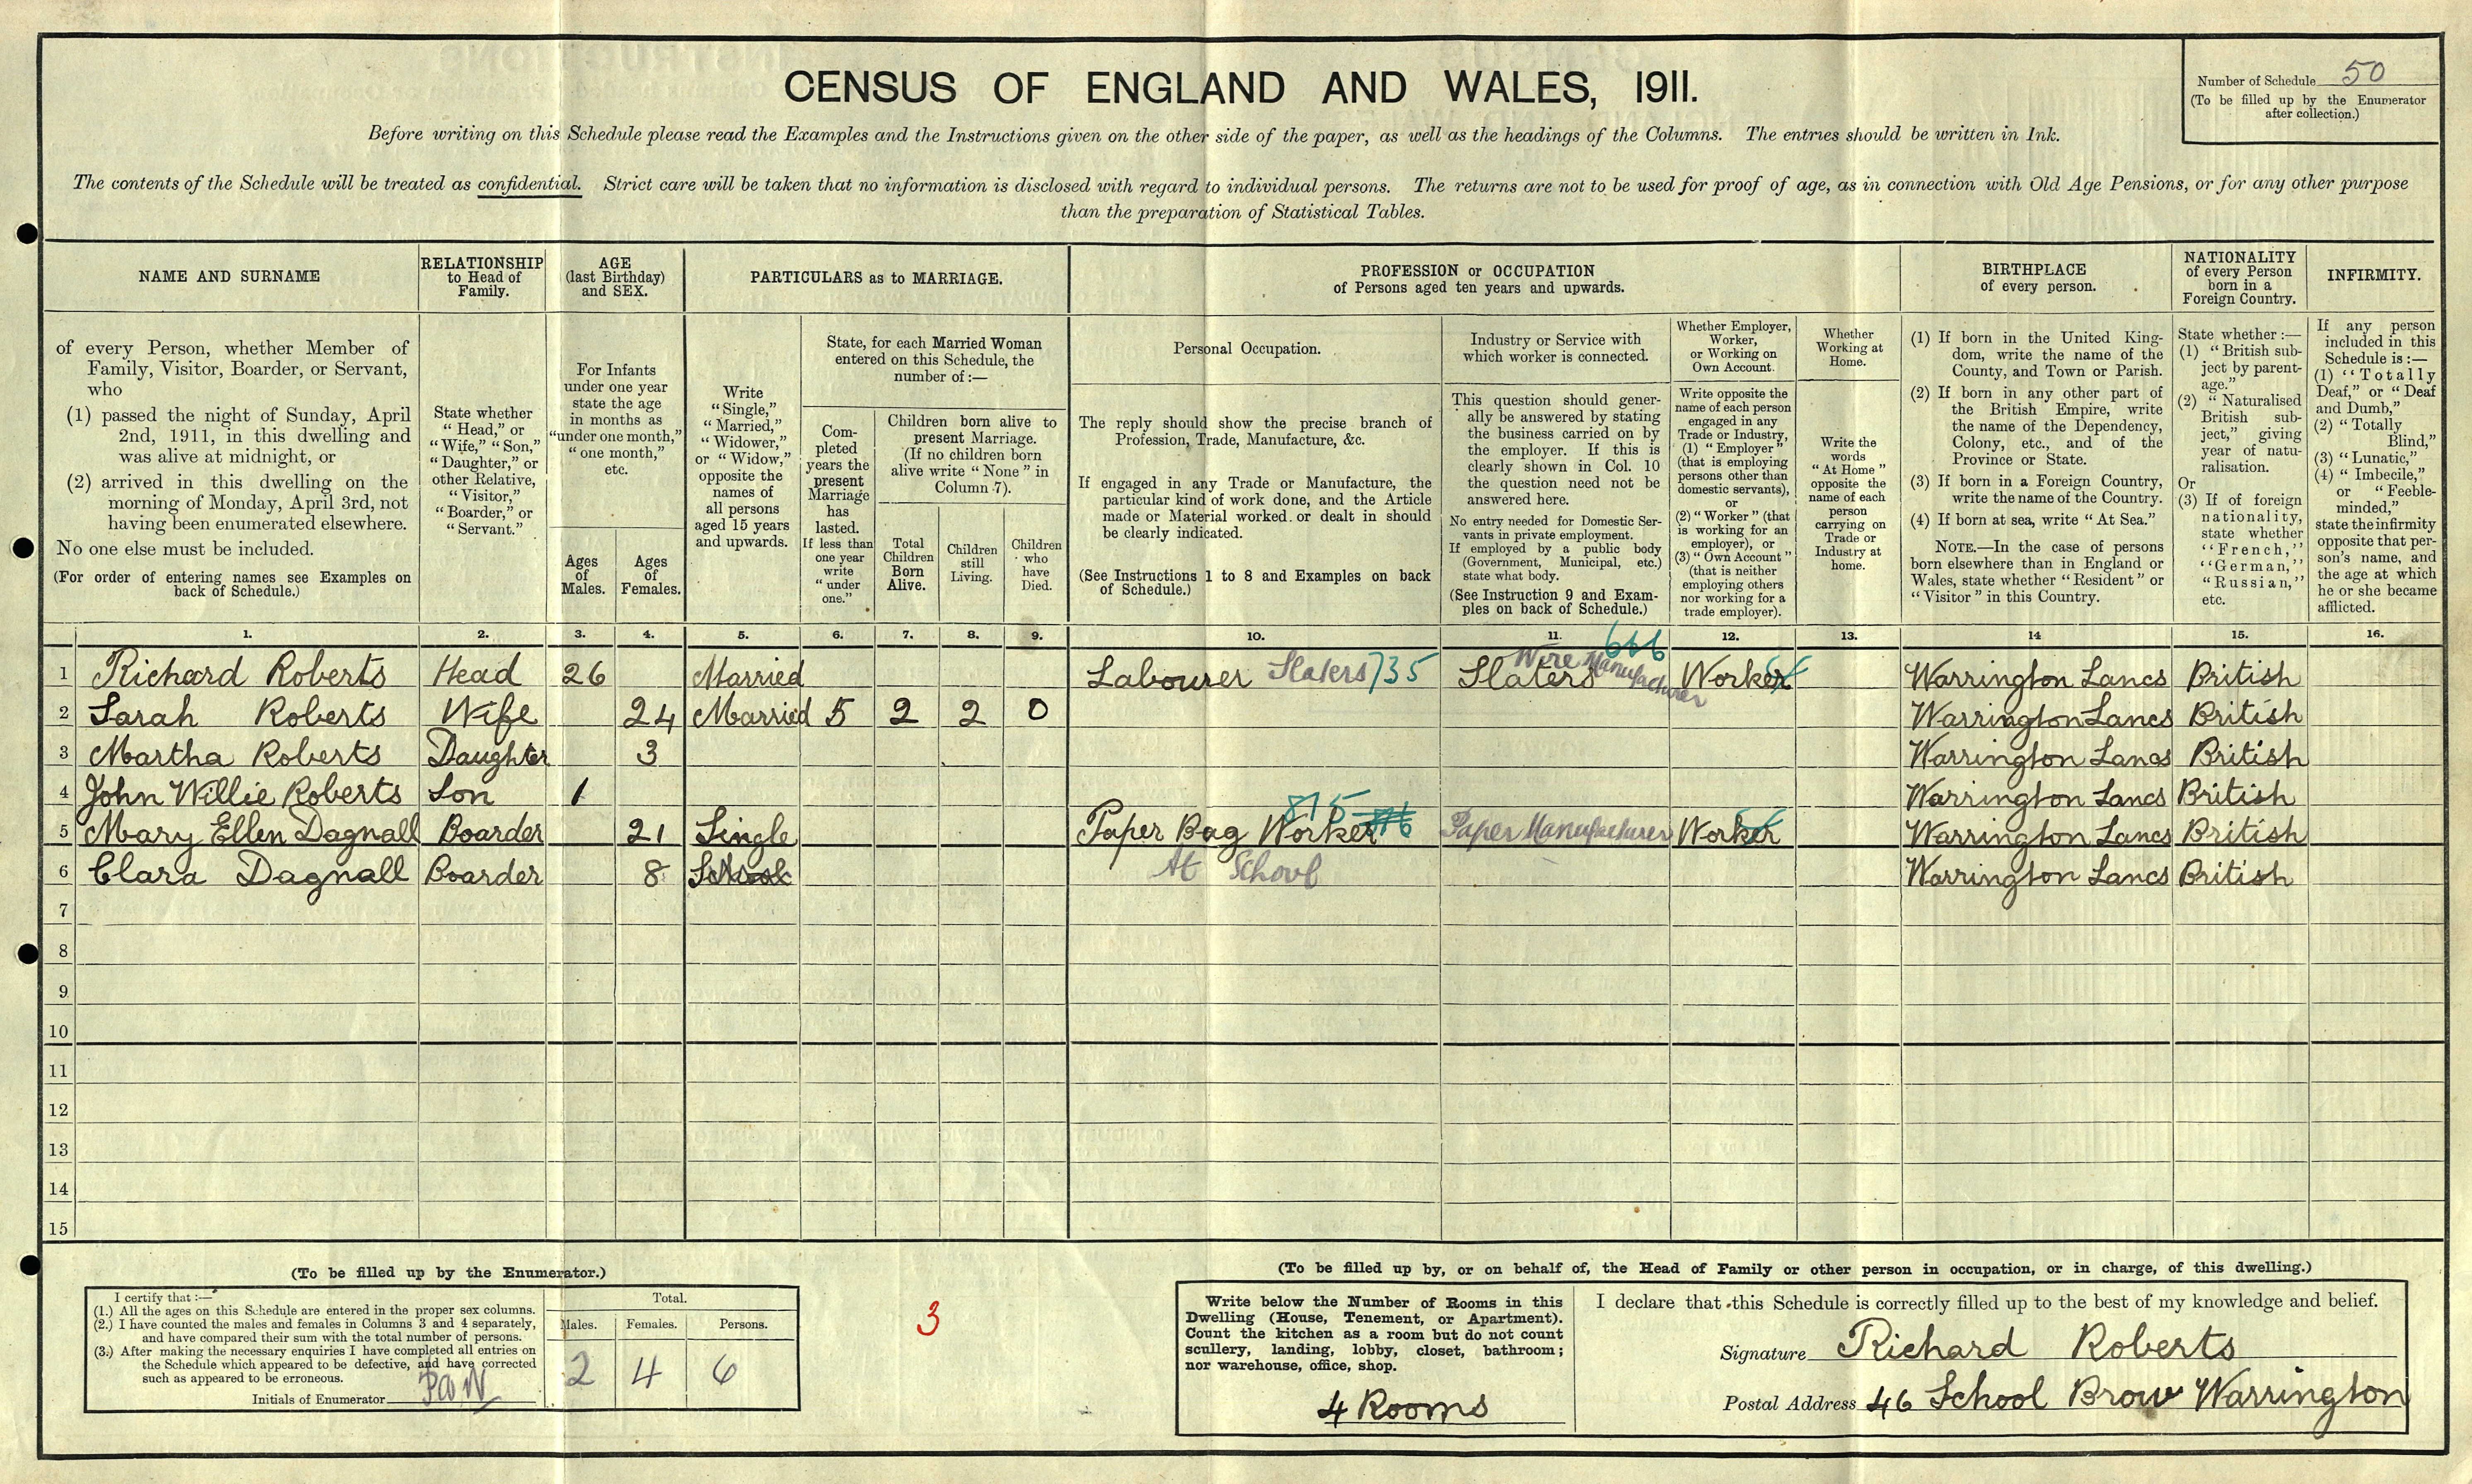 CENSUS OF ENGLAND AND WALES, 1911.
Number of Schedule 50
(To be filled up by the Enumerator
after collection.)
Before writing on this Schedule please read the Examples and the Instructions given on the other side of the paper, as well as the headings of the Columns. The entries should be written in Ink.
The contents of the Schedule will be treated as confidential. Strict care will be taken that no information is disclosed with regard to individual persons. The returns are not to be used for proof of age, as in connection with Old Age Pensions, or for any other purpose
than the preparation of Statistical Tables.
NAME AND SURNAME
of every Person, whether Member of
Family, Visitor, Boarder, or Servant,
who
(1) passed the night of Sunday, April
2nd, 1911, in this dwelling and
was alive at midnight, or
(2) arrived in this dwelling on the
morning of Monday, April 3rd, not
having been enumerated elsewhere.
No one else must be included.
(For order of entering names see Examples on
back of Schedule.)
RELATIONSHIP
to Head of
Family.
State whether
"Head," or
"Wife," "Son,"
"Daughter," or
other Relative,
"Visitor,"
"Boarder," or
"Servant."
AGE
(last Birthday)
and SEX.
For Infants
under one year
state the age
in months as
"under one month,"
"one month,"
etc.
Ages
of
Males.
Ages
of
Females.
PARTICULARS as to MARRIAGE.
Write
"Single,"
"Married,"
"Widower,"
or "Widow,"
opposite the
names of
all persons
aged 15 years
and upwards.
State, for each Married Woman
entered on this Schedule, the
number of:—
Com-
pleted
years the
present
Marriage
has
lasted.
If less than
one year
write
"under
one."
Children born alive to
present Marriage.
(If no children born
alive write "None" in
Column 7).
Total
Children
Born
Alive.
Children
still
Living.
Children
who
have
Died.
PROFESSION or OCCUPATION
of Persons aged ten years and upwards.
Personal Occupation.
The reply should show the precise branch of
Profession, Trade, Manufacture, &c.
If engaged in any Trade or Manufacture, the
particular kind of work done, and the Article
made or Material worked or dealt in should
be clearly indicated.
(See Instructions 1 to 8 and Examples on back
of Schedule.)
Industry or Service with
which worker is connected.
This question should gener-
ally be answered by stating
the business carried on by
the employer. If this is
clearly shown in Col. 10
the question need not be
answered here.
No entry needed for Domestic Ser-
vants in private employment.
If employed by a public body
(Government, Municipal, etc.)
state what body.
(See Instruction 9 and Exam-
ples on back of Schedule.)
Whether Employer,
Worker,
or Working on
Own Account.
Write opposite the
name of each person
engaged in any
Trade or Industry,
(1) "Employer"
(that is employing
persons other than
domestic servants),
or
(2) "Worker" (that
is working for an
employer), or
(3) "Own Account"
(that is neither
employing others
nor working for a
trade employer).
Whether
Working at
Home.
Write the
words
"At Home"
opposite the
name of each
person
carrying on
Trade or
Industry at
home.
BIRTHPLACE
of every person.
(1) If born in the United King-
dom, write the name of the
County, and Town or Parish.
(2) If born in any other part of
the British Empire, write
the name of the Dependency,
Colony, etc., and of the
Province or State.
(3) If born in a Foreign Country,
write the name of the Country.
(4) If born at sea, write "At Sea."
NOTE.—In the case of persons
born elsewhere than in England or
Wales, state whether "Resident" or
"Visitor" in this Country.
NATIONALITY
of every Person
born in a
Foreign Country.
State whether:—
(1) "British sub-
ject by parent-
age."
(2) "Naturalised
British sub-
ject," giving
year of natu-
ralisation.
Or
(3) If of foreign
nationality,
state whether
"French,"
"German,"
"Russian,"
etc.
INFIRMITY.
If any person
included in this
Schedule is:—
(1) "Totally
Deaf," or "Deaf
and Dumb,"
(2) "Totally
Blind,"
(3) "Lunatic,"
(4) "Imbecile,"
or "Feeble-
minded,"
state the infirmity
opposite that per-
son's name, and
the age at which
he or she became
afflicted.
1. 2. 3. 4. 5. 6. 7. 8. 9. 10. 11. 12. 13. 14 15. 16.
666
Wire Manufacturer
1 Richard Roberts Head 26 Married Labourer Slaters 735 Slaters Worker Warrington Lancs British
2 Sarah Roberts Wife 24 Married 5 2 2 0 Warrington Lancs British
3 Martha Roberts Daughter 3 Warrington Lancs British
4 John Willie Roberts Son 1 Warrington Lancs British
815
5 Mary Ellen Dagnall Boarder 21 Single Paper Bag Worker Paper Manufacturer Worker Warrington Lancs British
6 Clara Dagnall Boarder 8 School At School Warrington Lancs British
7
8
9
10
11
12
13
14
15
(To be filled up by the Enumerator.)
I certify that:—
(1.) All the ages on this Schedule are entered in the proper sex columns.
(2.) I have counted the males and females in Columns 3 and 4 separately,
and have compared their sum with the total number of persons.
(3.) After making the necessary enquiries I have completed all entries on
the Schedule which appeared to be defective, and have corrected
such as appeared to be erroneous.
Initials of Enumerator
Total.
Males. Females. Persons.
2 4 6
3
(To be filled up by, or on behalf of, the Head of Family or other person in occupation, or in charge, of this dwelling.)
Write below the Number of Rooms in this
Dwelling (House, Tenement, or Apartment).
Count the kitchen as a room but do not count
scullery, landing, lobby, closet, bathroom;
nor warehouse, office, shop.
4 Rooms
I declare that this Schedule is correctly filled up to the best of my knowledge and belief.
Signature Richard Roberts
Postal Address 46 School Brow Warrington